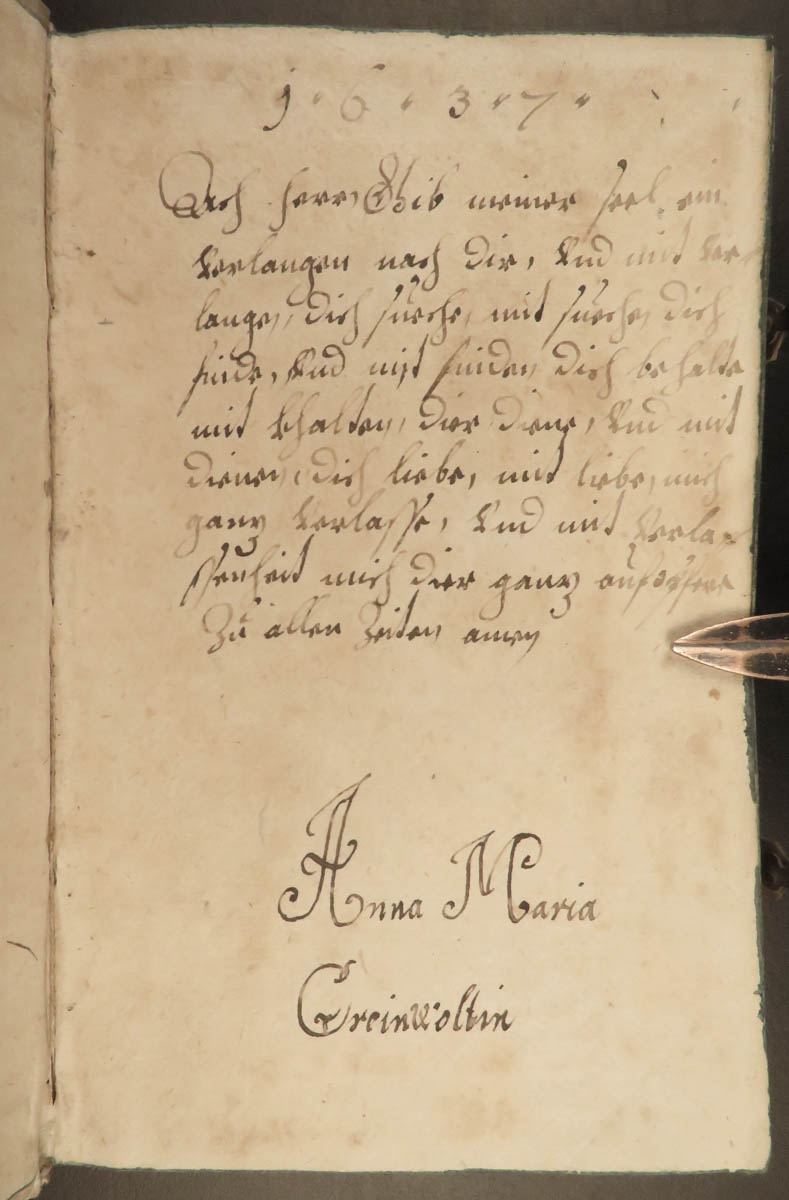 1 · 6 · 3 · 7 ·
Ach herr Gib meiner seel ein
Verlangen nach dir, Vnd mit Ver=
langen, dich sueche, mit suechen dich
finde, Vnd mit finden dich behalte
mit bhalten, dier diene, Vnd mit
dienen, dich liebe, mit lieben, mich
ganz Verlasse, Vnd mit Verla=
ssenheit mich dier ganz aufopfere
Zu allen Zeiten amen
Anna Maria
Greinwoltin